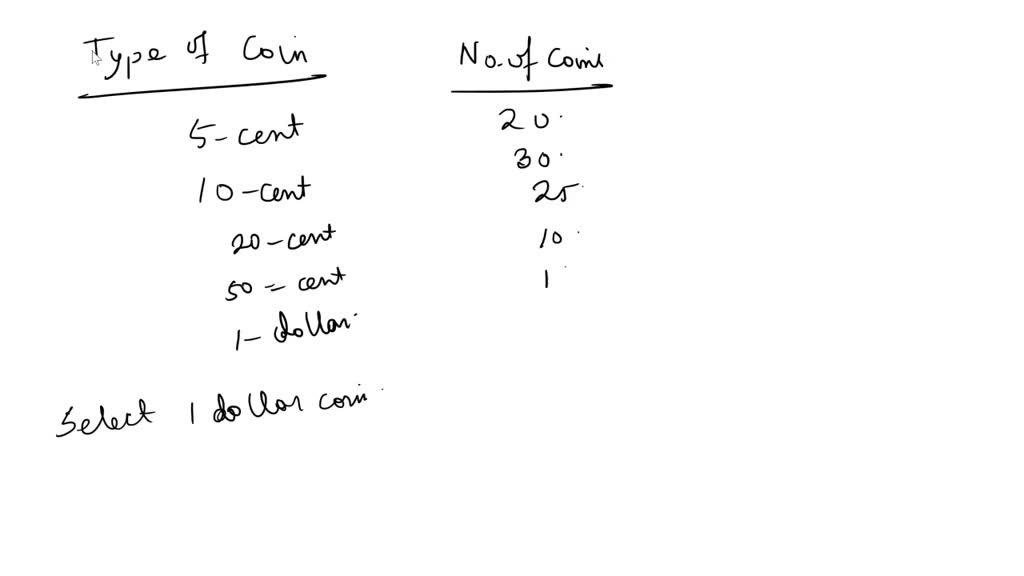 Type of Coin No. of Coins
5-cent 20
30
10-cent 25
20-cent 10
50-cent 1
1-dollar
Select 1 dollar coin